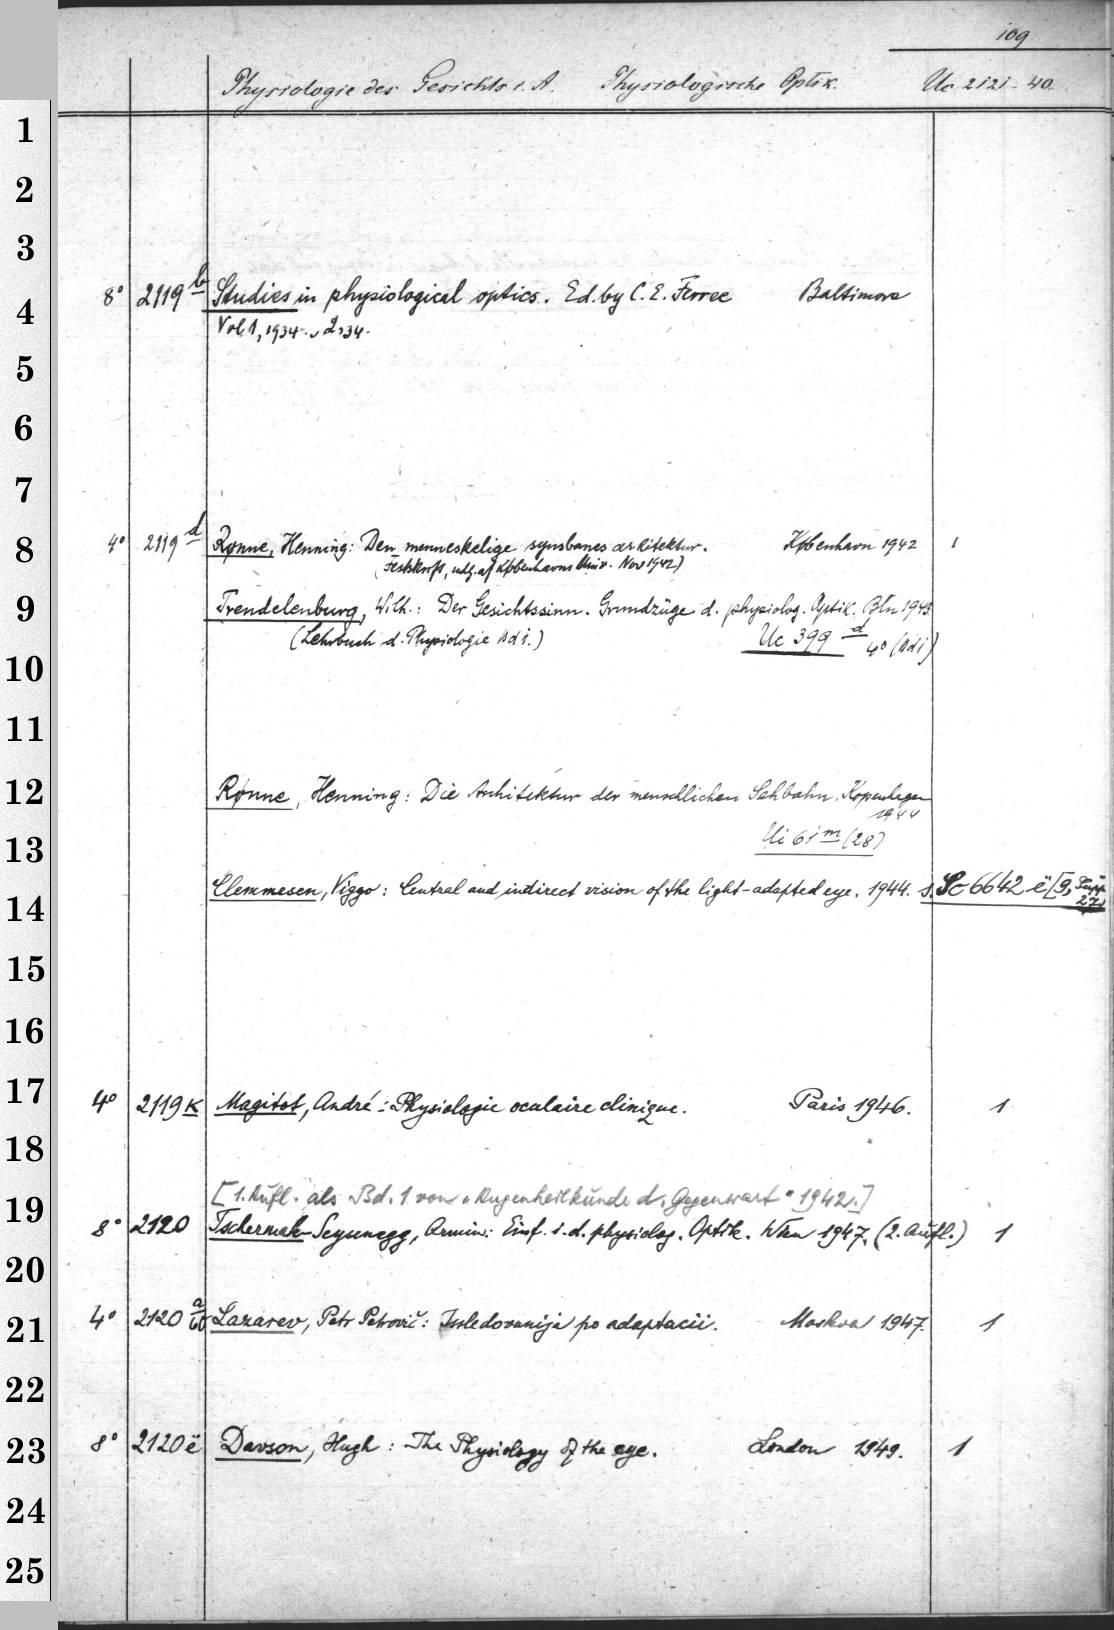 109
Physiologie des Gesichts i. A. Physiologische Optik. Uc 2121-40.
1
2
3
8° 2119 b Studies in physiological optics. Ed. by C. E. Ferree Baltimore
4
Vol. 1, 1934. 2, 34.
5
6
7
4° 2119 d Rønne, Henning: Den menneskelige synsbanes arkitektur. København 1942 1
8
(Festskrift, udg. af Københavns Univ. Nov 1942)
9
Trendelenburg, Wilh.: Der Gesichtssinn. Grundzüge d. physiolog. Optik. Bln 1943
(Lehrbuch d. Physiologie Bd 1.) Uc 399 d 4° (Bd 1)
10
11
12
Rønne, Henning: Die Architektur der menschlichen Sehbahn. Kopenhagen
1944
13
Ui 61 m (28)
Clemmesen, Viggo: Central and indirect vision of the light-adapted eye. 1944. s. Sc 6642 ë [9, Supp
27]
14
15
16
17
4° 2119 k Magitot, André: Physiologie oculaire clinique. Paris 1946. 1
18
[1. Aufl. als Bd. 1 von "Augenheilkunde d. Gegenwart" 1942.]
19
8° 2120 Tschermak-Seysenegg, Armin: Einf. i. d. physiolog. Optik. Wien 1947. (2. Aufl.) 1
20
4° 2120 a Lazarev, Petr Petrovič: Issledovanija po adaptacii. Moskva 1947. 1
21
22
8° 2120 ë Davson, Hugh: The Physiology of the eye. London 1949. 1
23
24
25